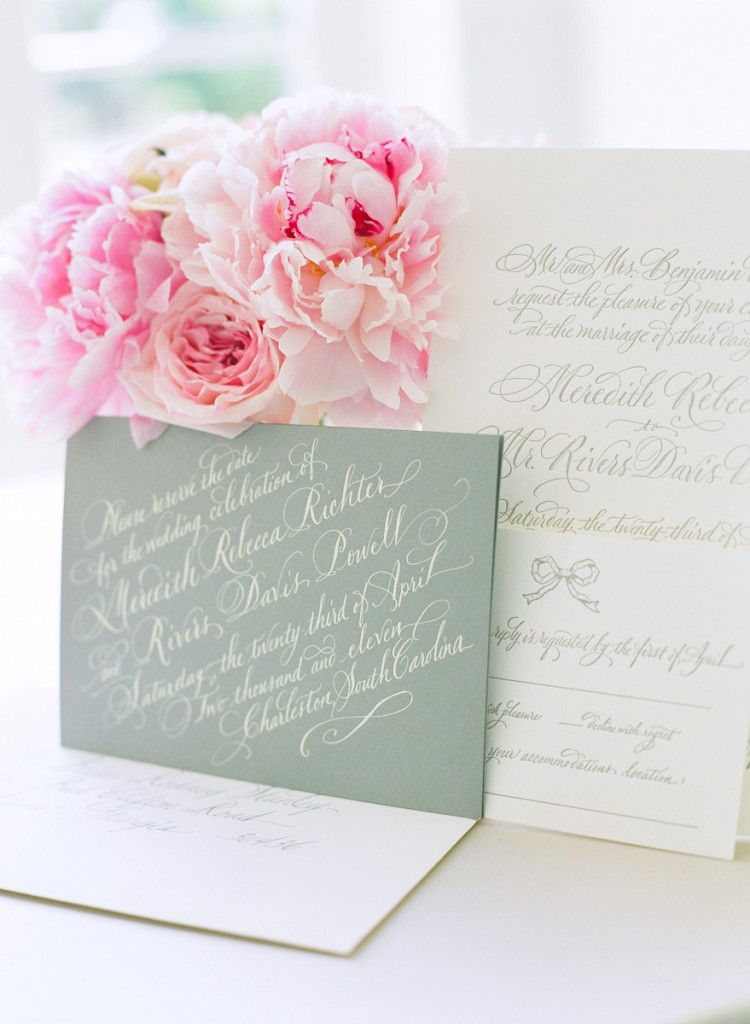 Please reserve the date
for the wedding celebration of
Meredith Rebecca Richter
and
Rivers Davis Powell
Saturday, the twenty-third of April
Two thousand and eleven
Charleston, South Carolina
Mr. and Mrs. Benjamin
request the pleasure of your
at the marriage of their
Meredith
to
Mr. Rivers Davis
Saturday, the twenty-third of
reply is requested by the first of April
pleasure decline with regret
your accommodations location:
Road
Georgia